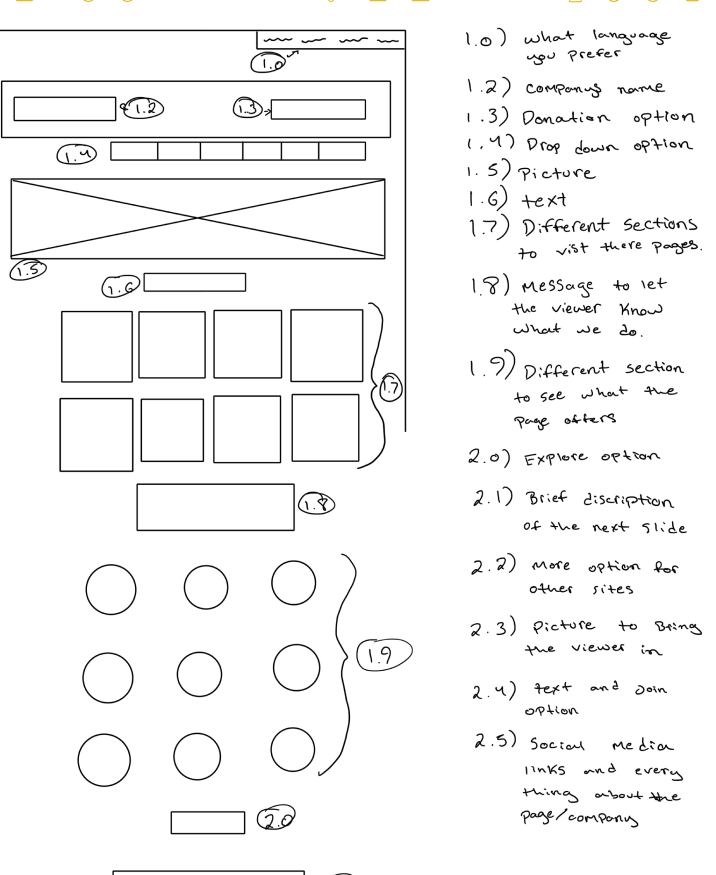 1.0
1.2
1.3
1.4
1.5
1.6
1.7
1.8
1.9
2.0
1.0) what language
you prefer
1.2) companys name
1.3) Donation option
1.4) Drop down option
1.5) Picture
1.6) text
1.7) Different sections
to vist there pages.
1.8) Message to let
the viewer know
what we do.
1.9) Different section
to see what the
page offers
2.0) Explore option
2.1) Brief discription
of the next slide
2.2) more option for
other sites
2.3) picture to Bring
the viewer in
2.4) text and Join
option
2.5) Social media
links and every
thing about the
page/company